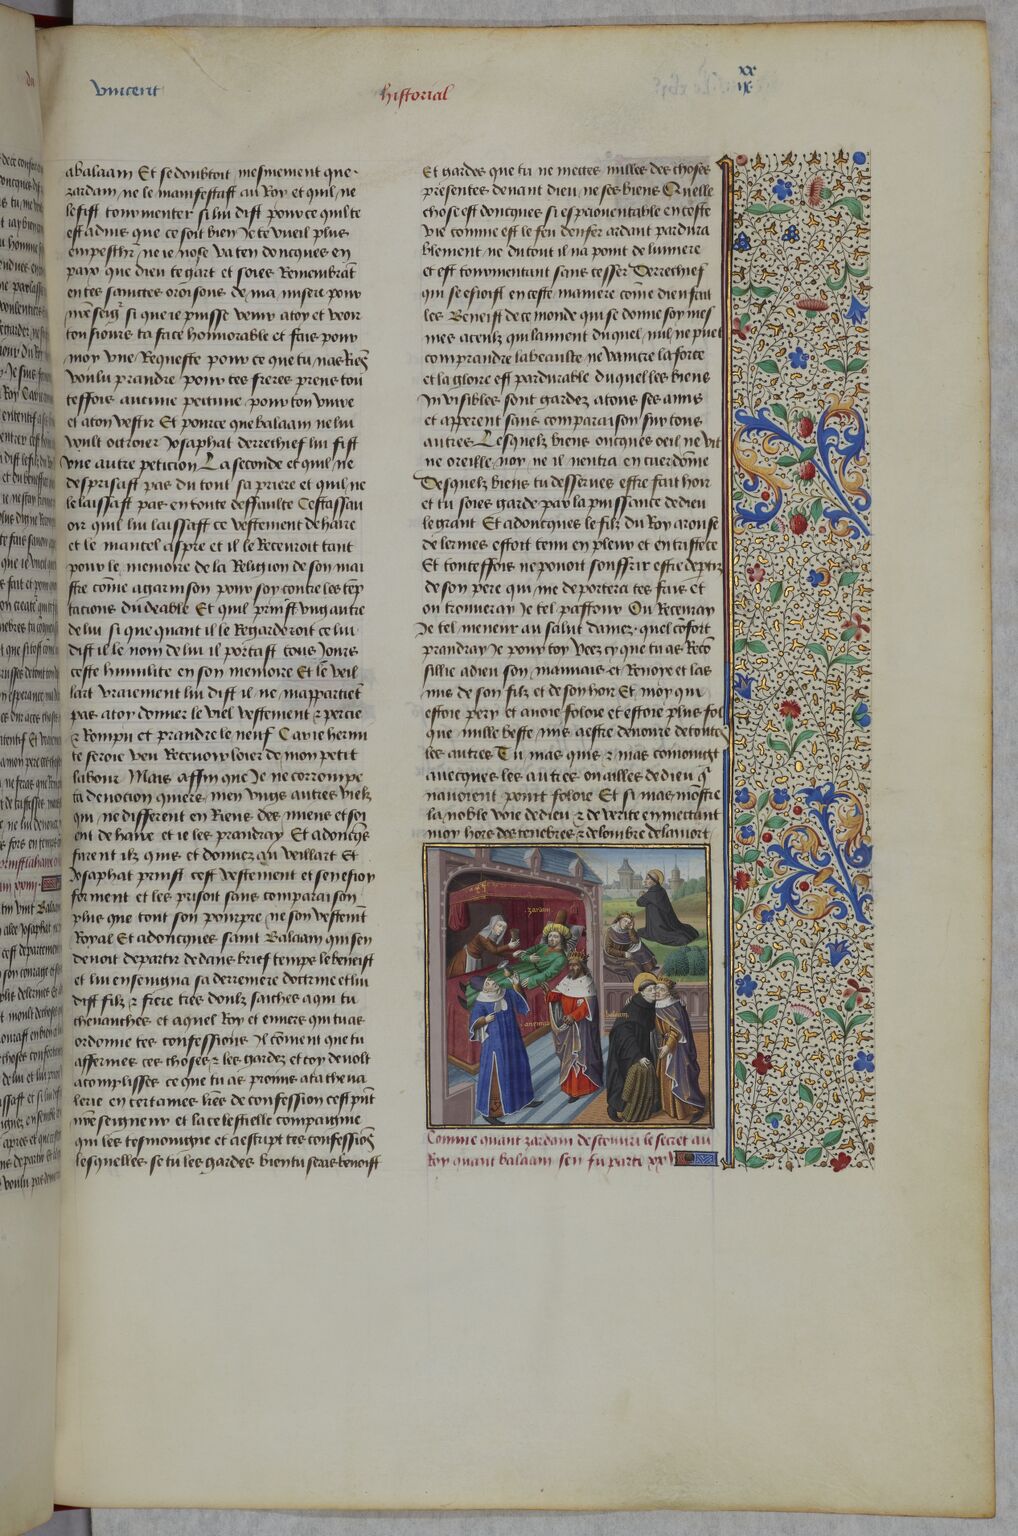 vincent
historial
xx
ix
a balaam Et se doubtoit mesmement que
zardam ne le manifestast au Roy et quil ne
le fist tourmenter si lui dist pour ce quil te
est aduis que ce soit bien Je te vueil plus
empeschr ne ie nose va ten doncques en
paix que dieu te gart et soies Remembrat
en tes sainctes oroisons de ma misere pour
nre seigr si que ie puisse venir a toy et veoir
tousiours ta face honnorable et fais pour
moy vne Requeste pour ce que tu nas Ries
voulu prandre pour tes freres prens tou
teffois aucune pecune pour ton viure
et a ton vestir Et pource que balaam ne lui
voult octroier Josaphat derrechief lui fist
vne autre peticion La seconde et quil ne
desprisast pas du tout sa priere et quil ne
le laissast pas en toute deffaulte Cestassau
oir quil lui laissast ce vestement de haire
et le mantel aspre et il le Receuroit tant
pour le memoire de la Religion de son mai
stre come a garnison pour soy contre les tep
tacions du deable Et quil prinst vng autre
de lui si que quant il le Regarderoit ce lui
dist il le nom de lui il portast tous Jours
ceste humilite en son memoire Et le veil
lart vraiement lui dist il ne mappartiet
pas a toy donner le viel vestement & percie
& Rompu et prandre le neuf Ca vie hermi
te seroie veu Receuoir loier de mon petit
labour Mais affin que Je ne corrompe
ta deuocion quiere men vngs autres vielz
qui ne different en Riens des miens et soi
ent de haire et ie les prandray Et adoncqs
furent ilz quis et donnez au veillart Et
Josaphat prinst cest vestement et sen esioy
forment et les prisoit sans comparaison
plus que tout son pourpre ne son vestemt
Royal Et adoncques saint Balaam qui sen
deuoit departir dedans brief temps le beneist
et lui enseigna sa derreniere doctrine et lui
dist filz & frere tres doulz saiches a qui tu
cheuauches et a quel Roy et enuers qui tu as
ordonne tes confessions Il couient que tu
affermes ces choses & les gardez et toy deuolt
acomplisses ce que tu as promis a ta cheua
lerie en certaines lres de confession cest pnt
nre seigneur et la celestielle compaignie
qui les tesmoingne et a escript tes confessios
lesquelles se tu les gardes bien tu seras benoist
Et gardes que tu ne mectes nulles des choses
presentes deuant dieu ne ses biens Quelle
chose est doncques si espouentable en ceste
vie comme est le feu denfer ardant pardura
blement ne du tout il na point de lumiere
et est tourmentant sans cesser Derrechief
qui se esioist en ceste maniere come dieu fait
les Beneist de ce monde qui se donne soy mes
mes a ceulz qui laiment duquel nul ne puet
comprandre la beaulte ne vaincre la force
et la gloire est pardurable duquel les biens
Inuisibles sont gardez a tous ses amis
et apperent sans comparaison sur tous
autres Lesquelz biens oncques oeil ne vit
ne oreille noy ne il nentra en cuer dome
Desquelz biens tu desseruez estre fait hoir
et tu soies garde par la puissance de dieu
le grant Et adoncques le filz du Roy arouse
de lermes estoit tenu en pleur et en tristece
Et toutesfois ne pouoit souffrir estre departi
de son pere qui me deportera ces fais et
ou trouueray Je tel pastour Ou Receuray
Je tel meneur au salut dames quel cofort
prandray Je pour toy Veez cy que tu as Reco
sillie a dieu son mauuais et Renoye et las
mis de son filz et de son hoir Et moy qui
estoie pery et auoie foloie et estoie plus fol
que nulle beste mis a estre deuoure de toutes
les autres Tu mas quis & mas comoingt
auecques les autres ouailles de dieu q
nauoient point foloie Et si mas monstre
la noble voie de dieu & de verite en mectant
moy hors des tenebres & de lombre de la mort
zardam
balaam
Comme quant zardam descouuri le secret au
Roy quant balaam sen fu parti xx